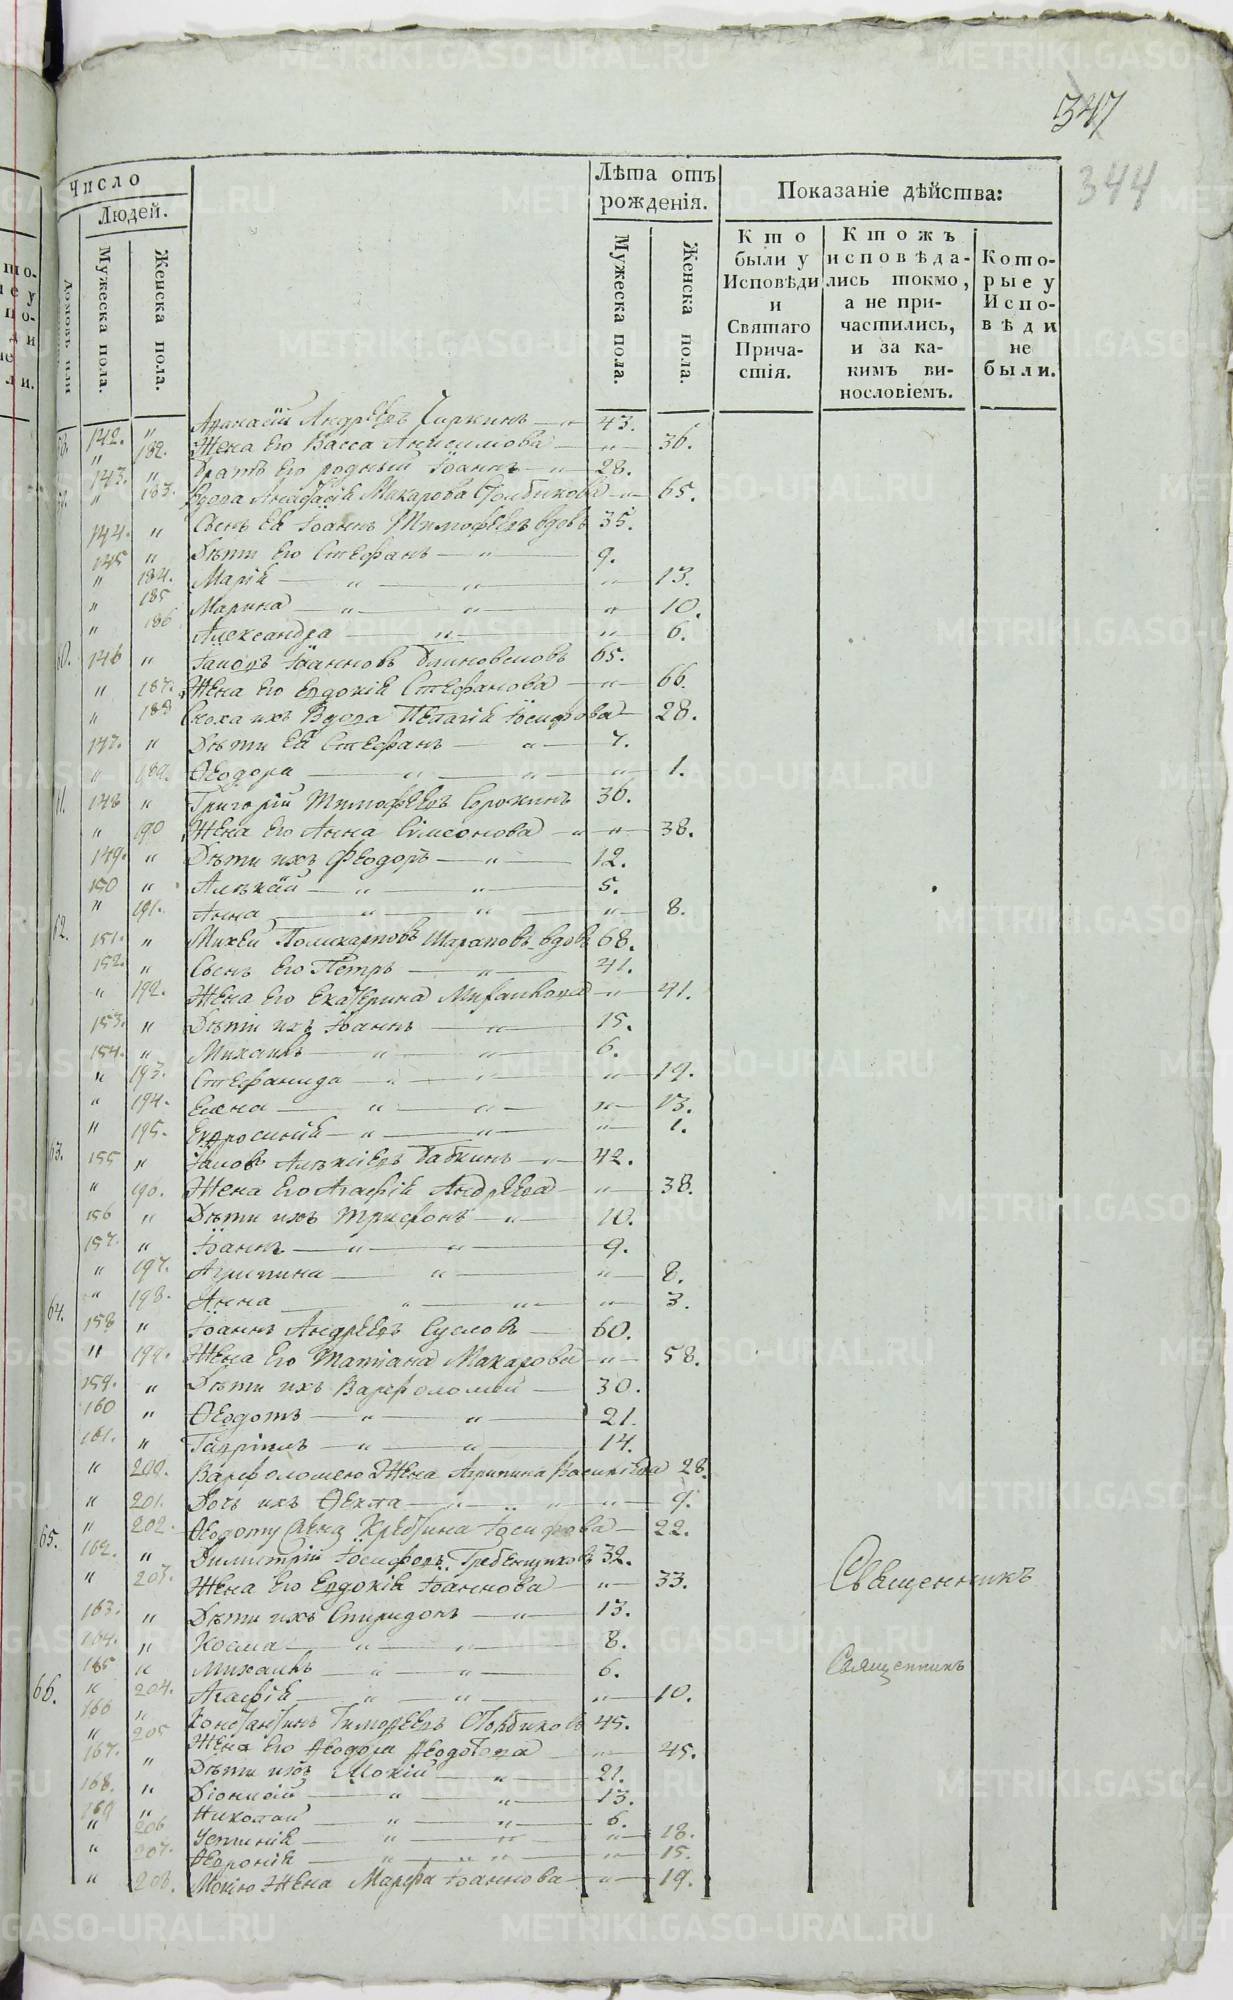 347
344
Число
Людей.
Мужеска пола.
Женска пола.
Лѣта отъ
рожденія.
Мужеска пола.
Женска пола.
Показаніе дѣйства:
Кто
были у
Исповѣди
и
Святаго
Прича-
стія.
Ктожъ
исповѣда-
лись токмо,
а не при-
частились,
и за ка-
кимъ ви-
нословіемъ.
Кото-
рые у
Испо-
вѣди
не
были.
142. " Афанасій Андреевъ Чиркинъ — " 43.
" 182. Жена Его Васса Анисимова — " — 36.
143. " Братъ Его родный Іоаннъ — " — 28.
" 183. Вдова Анастасія Макарова Столбикова — " — 65.
144. " Сынъ Ея Іоаннъ Тимофеевъ вдовъ 35.
145 " Дѣти Его Стефанъ — " — 9.
" 184. Марія — " — " — " — 13.
" 185 Марина — " — " — " — 10.
" 186 Александра — " — " — 6.
60. 146 " Іаковъ Іоанновъ 65.
" 187. Жена Его Евдокія Стефанова — " — 66.
" 188 Сноха ихъ Вдова Пелагія Іосифова — 28.
147. " Дѣти Ея Стефанъ — " — 7.
" 189. Ѳеодора — " — " — " — 1.
61. 148 " Григорій Тимофеевъ Сорокинъ 36.
" 190 Жена Его Анна Симеонова — " — " — 38.
149. " Дѣти ихъ Ѳеодоръ — " — 12.
150 " Алѣксѣй — " — " — 5.
" 191. Анна — " — " — " — 8.
62. 151. " Михей Поликарповъ Шараповъ вдовъ 68.
152. " Сынъ Его Петръ — " — 41.
" 192. Жена Его Екатерина Михаилова — " — 41.
153. " Дѣти ихъ Іоаннъ — " — 15.
154. " Михаилъ — " — " — 6.
" 193. Стефанида — " — " — " — 19.
" 194. Елена — " — " — " — 13.
" 195. Евфросинія — " — " — " — 1.
63. 155 " Іаковъ Алѣксіевъ Бабкинъ — " — 42.
" 196. Жена Его Агафія Андреева — " — 38.
156 " Дѣти ихъ Трифонъ — " — 10.
157. " Іоаннъ — " — " — 9.
" 197. Агрипина — " — " — 8.
" 198. Анна — " — " — " — 3.
64. 158 " Іоаннъ Андреевъ Сусловъ — 60.
" 199. Жена Его Татіана Макарова — " — 58.
159. " Дѣти ихъ Варфоломей — 30.
160 " Ѳеодотъ — " — " — 21.
161. " Гавріилъ — " — " — 14.
" 200. Варфоломею Жена Агрипина Василіева 28.
" 201. Дочь ихъ Ѳекла — " — " — " — 9.
" 202. Ѳеодоту Жена Христина Іосифова — 22.
65. 162. " Димитрій Іосифовъ Гребенщиковъ 32.
" 203. Жена Его Евдокія Іоаннова — " — 33.
163. " Дѣти ихъ Спиридонъ — " — 13.
164. " Косма — " — " — 8.
165 " Михаилъ — " — " — 6.
" 204. Агафія — " — " — " — 10.
66. 166 " Константинъ Тимофеевъ Столбиковъ 45.
" 205 Жена Его Ѳеодора Ѳеодотова — " — 45.
167. " Дѣти ихъ Мокій — " — 21.
168. " Діонисій — " — " — 13.
169 " Николай — " — " — 6.
" 206 Устинія — " — " — " — 18.
" 207. Ѳевронія — " — " — " — 15.
" 208. Мокію Жена Марфа Іоаннова — " — 19.
Священникъ
Священникъ